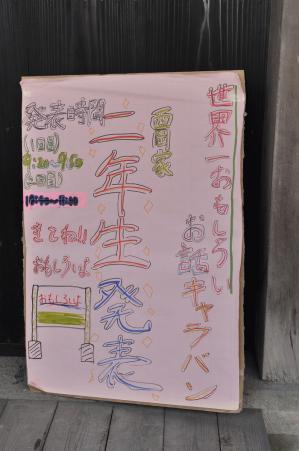 世界一おもしろい
お話キャラバン
西田家
二年生発表
発表時間
(1回目)
9:30~9:50
(2回目)
きてね!!
おもしろいよ
おもしろいよ